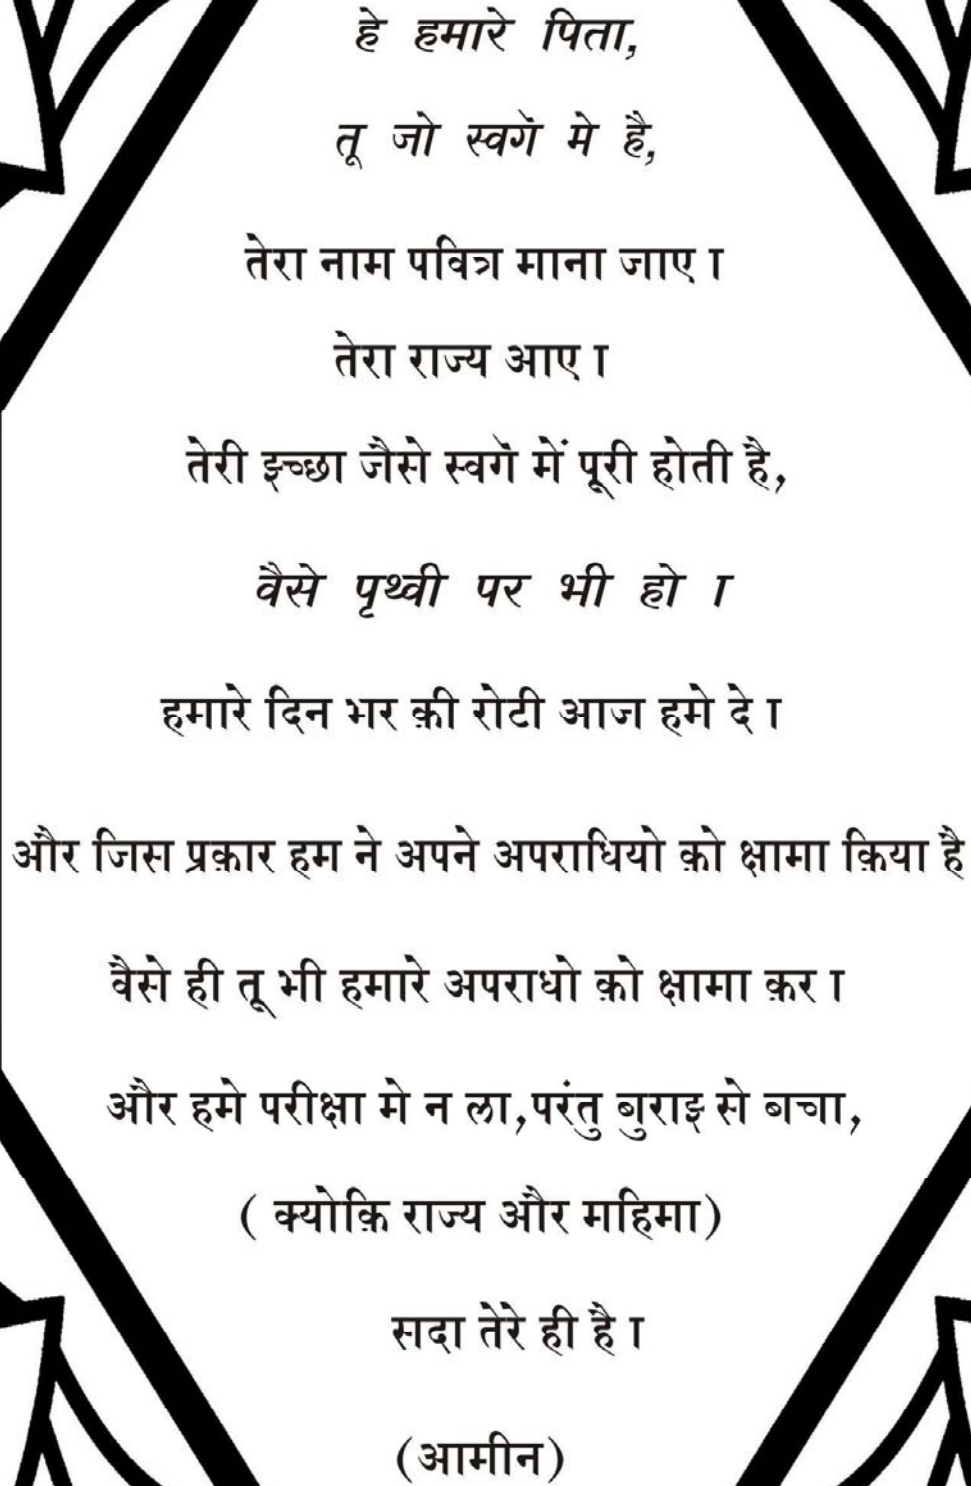 हे हमारे पिता,
तू जो स्वगॅ मे है,
तेरा नाम पवित्र माना जाए ा
तेरा राज्य आए ा
तेरी इच्छा जैसे स्वगॅ में पूरी होती है,
वैसे पृथ्वी पर भी हो ा
हमारे दिन भर क़ी रोटी आज हमे दे ा
और जिस प्रक़ार हम ने अपने अपराधियो क़ो क्षामा क़िया है
वैसे ही तू भी हमारे अपराधो क़ो क्षामा क़र ा
और हमे परीक्षा मे न ला,परंतु बुराइ से बचा,
( क्योक़ि राज्य और माहिमा)
सदा तेरे ही है ा
(आमीन)